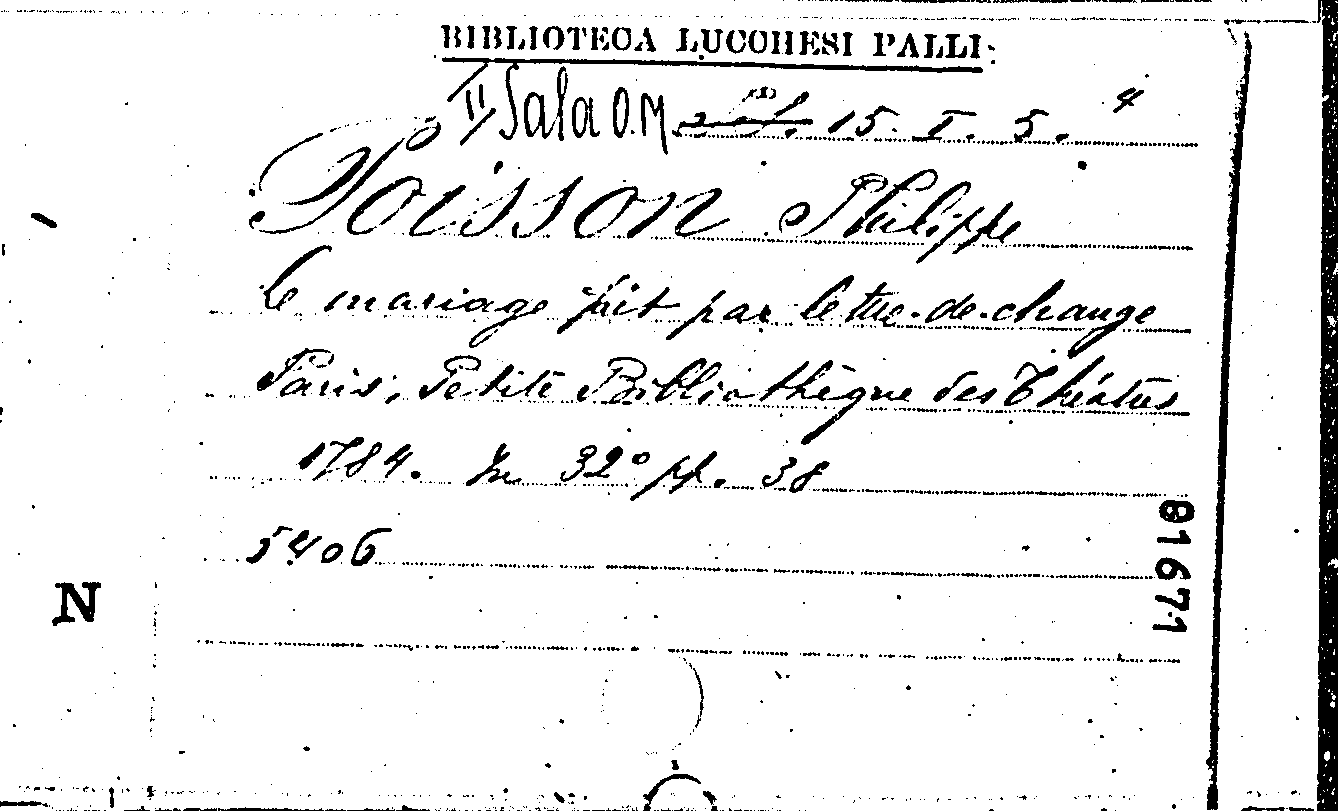 BIBLIOTECA LUCCHESI PALLI
II Sala O.M. 15. I. 5. 4
Poisson Philippe
le mariage fait par lettre-de-change
Paris, Petite Bibliothèque des Théatres
1784. In 32° pp. 38
5406
81671
N